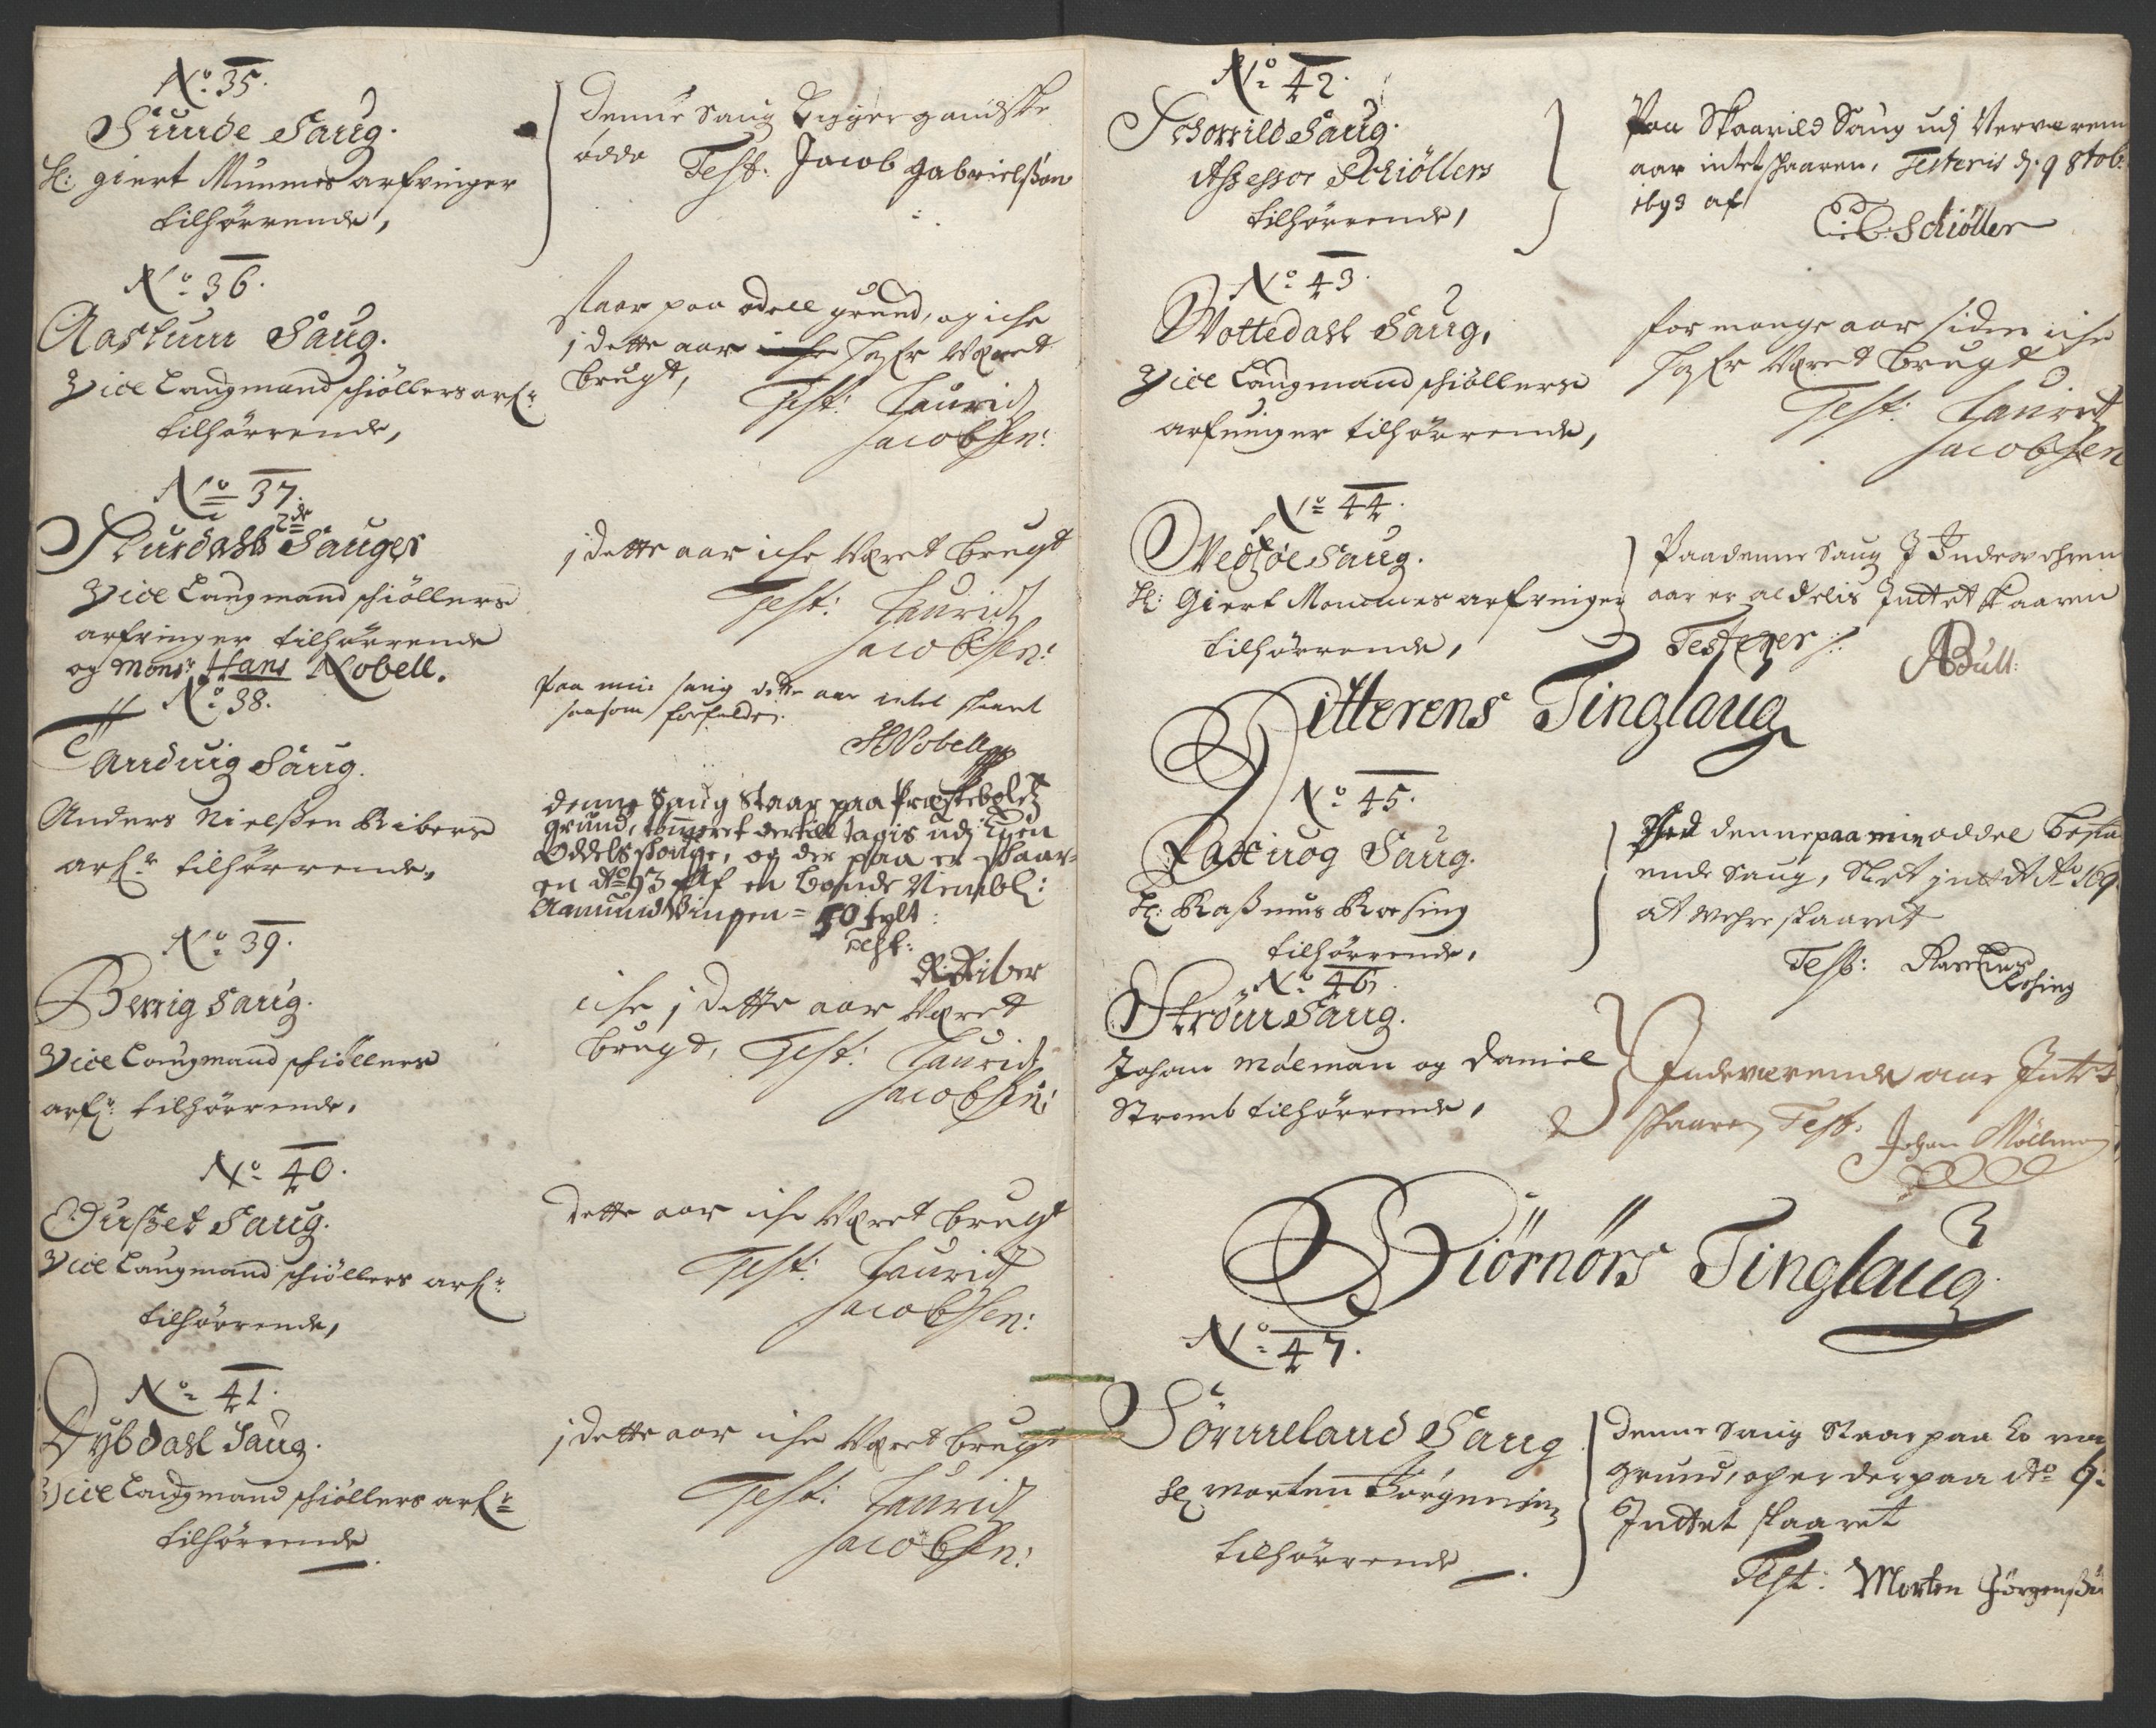 No: 35.
Sunde Saug.
Sl: giert Mummes arfvinger
tilhørrende,
Denne Saug Ligger gandske
øde Test: Jacob gabrielsßøn
No: 36.
Aastum Saug.
Vice Laugmand schiøllers arf:
tilhørrende,
staar paa odell grund, og iche
j dette aar hafr Været
brugt,
Test: Lauridtz
Jacobsen:
No: 37.
2de
Sauger
Vice Laugmand schiøllers
arfvinger tilhørrende
og Monsr: Hans Nobell.
j dette aar iche Været brugt
Test: Lauridtz
Jacobsen:
Paa min saug dette aar intet skaaret
saasom forfalden.
HNobell
No: 38.
Saug.
Anders Nielßen Ribers
arf: tilhørrende,
denne Saug Staar paa Præstebolitz
grund, tømmeret dertill tagis udj Egen
Oddels skouge, og der paa er skaar-
en Ao 93 Af en bonde Nembl:
Aamund Vingen = 50 tylt:
Test:
Riber
No: 39.
Berrig Saug.
Vice Laugmand schiøllers
arf: tilhørrende,
iche j dette aar Været
brugt, Test: Lauridtz
Jacobsen:
No: 40.
Saug.
Vice Laugmand schiøllers arf:
tilhørrende,
dette aar iche Været brugt
Test: Lauridtz
Jacobsen:
No: 41.
Dybdahl Saug.
Vice Laugmand schiøllers arf:
tilhørrende
j dette aar iche Været brugt
Test: Lauridtz
Jacobsen:
No: 42.
Schorrild Saug.
Assessor Schiøllers
tilhørrende,
Paa Skaarild Saug udj Verværem
aar intet skaaren, Testeris d. 9 8tob:
1693 af
Schiøller
No: 43.
Wottedahl Saug,
Vice Laugmand schiøllers
arfvinger tilhørrende,
for mange aar siden iche
hafr Været brugt
Test: Lauridtz
Jacobsen
No: 44.
Saug.
Sl: Giert Mommes arfvinger
tilhørrende,
Paa denne Saug J Indeværen
aar er aldelis Inttet skaaren
Testerer
ABull:
Hitterens Tinglaug
No: 45.
Laxuog Saug.
Sl: Raßmus Roesing
tilhørrende,
Ved denne paa min oddel besta
ende Saug, Slet inttet Ao 169
at wehre skaaret
Test: Rasmus
Rosing
No: 46.
Strøm Saug.
Johan Mølman og Daniel
Stromb tilhørrende,
Indeværende aar Intet
skaaren Test: Johan Møllman
Biörnörs Tinglaug
No: 47.
Sørmeland Saug
Sl Morten Jørgensen
tilhørrende
Denne Saug Staar paa
grund, og er der paa Ao 9:
Inttet skaaret
Test: Morten Jørgenßøn